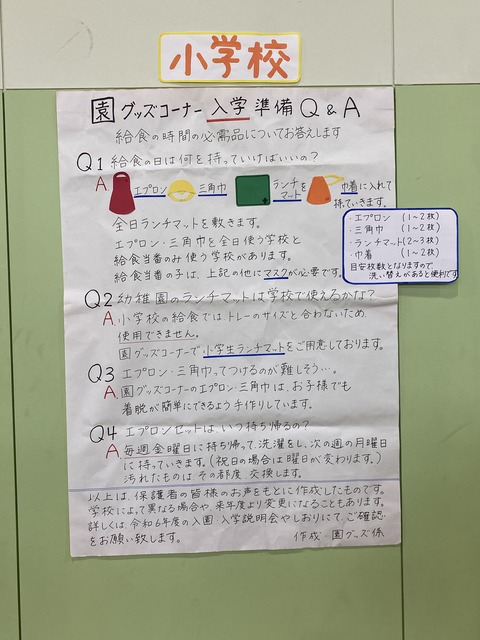 小学校
園 グッズコーナー 入学 準備 Q & A
給食の時間の必需品についてお答えします
Q1 給食の日は何を持っていけばいいの？
A エプロン 三角巾 ランチマットを 巾着に入れて持っていきます。
全日ランチマットを敷きます。
エプロン・三角巾を全日使う学校と
給食当番のみ使う学校があります。
給食当番の子は、上記の他にマスクが必要です。
・エプロン (1~2枚)
・三角巾 (1~2枚)
・ランチマット(2~3枚)
・巾着 (1~2枚)
目安枚数となりますので、
洗い替えがあると便利です
Q2 幼稚園のランチマットは学校で使えるかな？
A 小学校の給食では、トレーのサイズと合わないため、
使用できません。
園グッズコーナーで小学生ランチマットをご用意しております。
Q3 エプロン・三角巾ってつけるのが難しそう…。
A 園グッズコーナーのエプロン・三角巾は、お子様でも
着脱が簡単にできるよう手作りしています。
Q4 エプロンセットは、いつ持ち帰るの？
A 毎週金曜日に持ち帰って、洗濯をし、次の週の月曜日
に持っていきます。(祝日の場合は曜日が変わります。)
汚れたものは、その都度 交換します。
以上は、保護者の皆様のお声をもとに作成したものです。
学校によって異なる場合や、来年度より変更になることもあります。
詳しくは、令和6年度の入園・入学説明会やしおりにて、ご確認
をお願い致します。
作成 園グッズ係